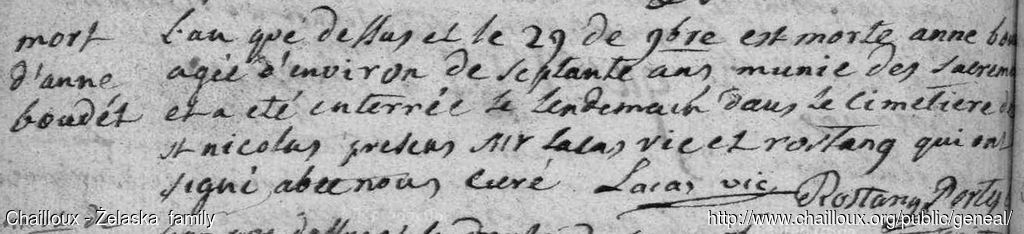 mort
d'anne
boudét
L'an que dessus et le 29 de 9bre est morte anne bou
agée d'environ de septante ans munie des sacrem
et a eté enterrée le lendemain dans le Cimetiere d
st nicolas presens Mr Lacas vic et rostang qui ont
signé avec nous Curé Lacas vic Rostang
Chailloux - Żelaska family
http://www.chailloux.org/public/geneal/